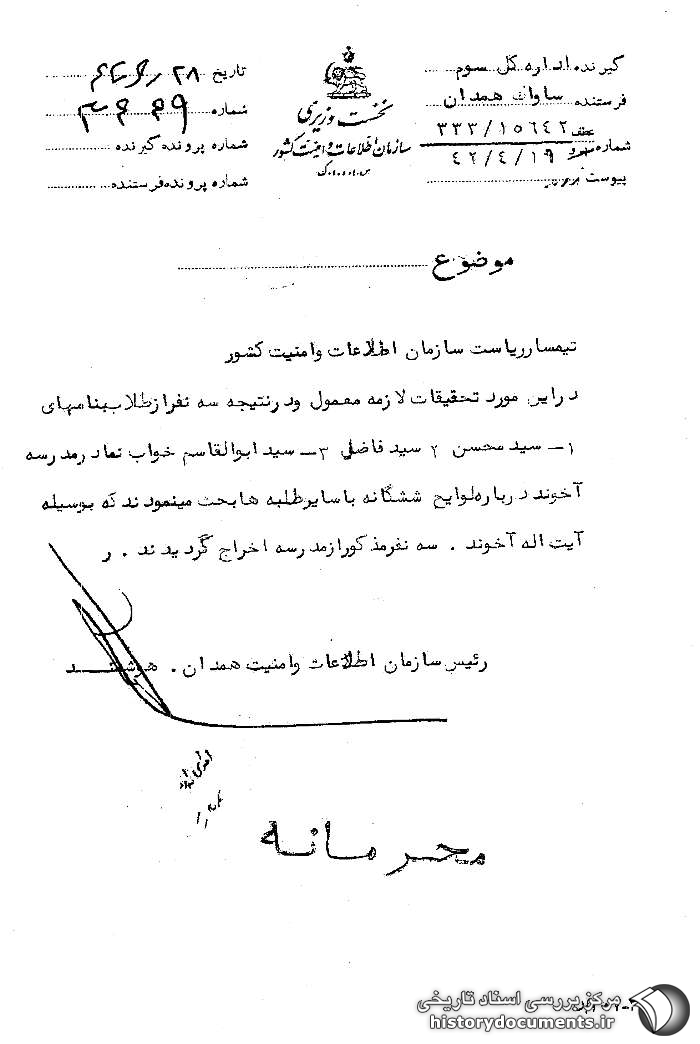 گیرنده اداره کل سوم
فرستنده ساواک همدان
شماره عطف ۳۳۳/۱۵۶۴۲
۴۲/۴/۱۹
پیوست
نخست وزیری
سازمان اطلاعات و امنیت کشور
س.ا.و.ا.ک
تاریخ ۲۸
شماره
شماره پرونده گیرنده
شماره پرونده فرستنده
موضوع
تیمسار ریاست سازمان اطلاعات و امنیت کشور
در این مورد تحقیقات لازمه معمول و در نتیجه سه نفر از طلاب بنامهای
۱ـ سید محسن ۲ سید فاضلی ۳ـ سید ابوالقاسم خواب نما در مدرسه
آخوند درباره لوایح ششگانه با سایر طلبه ها بحث مینمودند که بوسیله
آیت اله آخوند . سه نفر مذکور از مدرسه اخراج گردیدند . ر
رئیس سازمان اطلاعات و امنیت همدان . هوشمند
محرمانه
مرکز بررسی اسناد تاریخی
historydocuments.ir